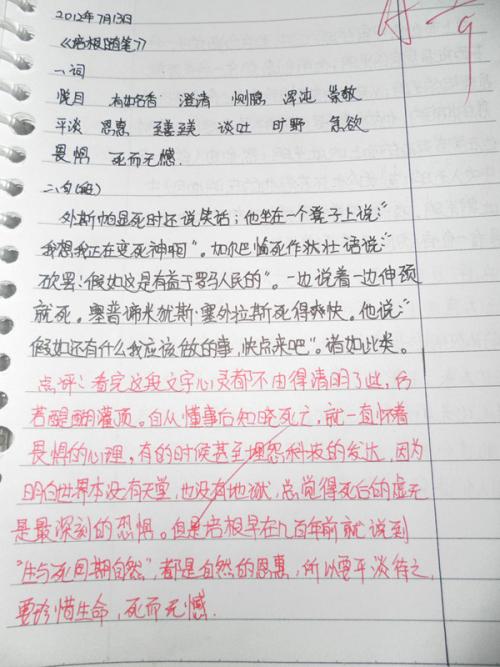 2012年7月13日
《培根随笔》
一、词
悦目 有如名香 澄清 恻隐 浑沌 崇敬
平淡 恩惠 臻美 谈吐 旷野 急欲
畏惧 死而无憾
二、句(段)
外斯帕显死时还说笑话；他坐在一个凳子上说："
我想我正在变死神啊"。加尔巴临死作状壮语说："
砍罢！假如这是有益于罗马人民的"。一边说着一边伸颈
就死。塞普谛米犹斯·塞外拉斯死得爽快。他说："
假如还有什么我应该做的事，快点来吧"。诸如此类。
点评：看完这段文字心灵都不由得清明了些，仿
若醍醐灌顶。自从懂事后知晓死亡，就一直怀着
畏惧的心理，有的时候甚至埋怨科技的发达，因为
明白世界本没有天堂，也没有地狱，总觉得死后的虚无
是最深刻的恐惧。但是培根早在几百年前就说到
"生与死同期自然"，都是自然的恩惠，所以要平淡待之，
要珍惜生命，死而无憾.